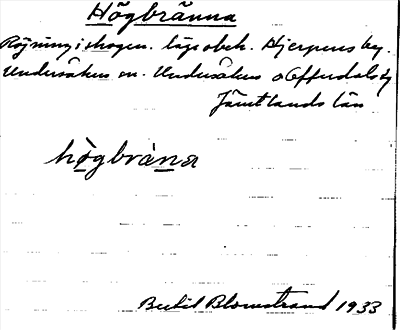 Högbränna
Röjning i skogen. läge obek. Hjerpens by.
Undersåkers sn. Undersåkers o Offerdals tg
Jämtlands län
högbrὰna
Bertil Blomstrand 1933